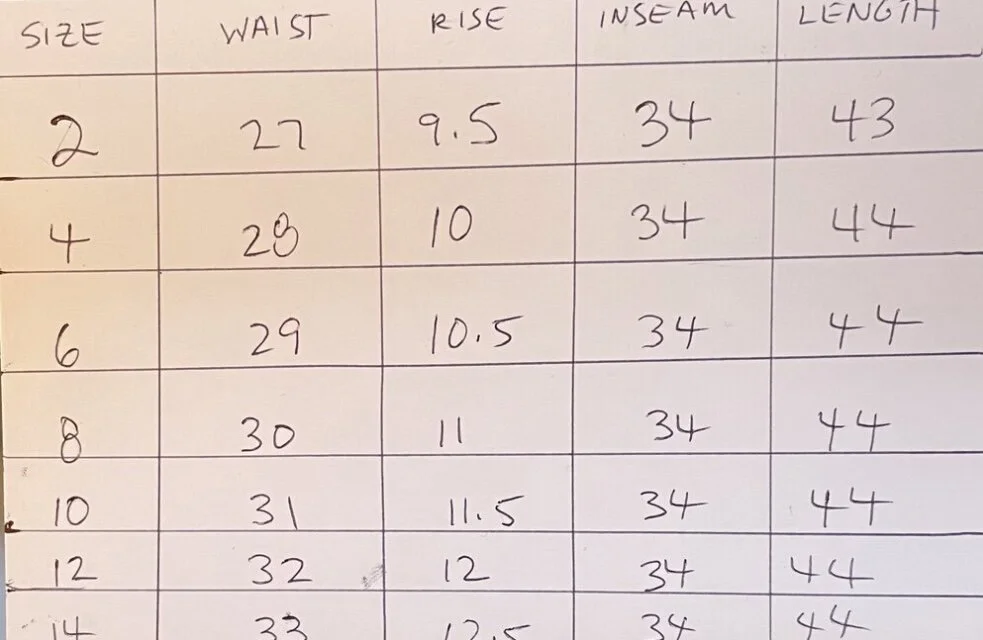 SIZE WAIST RISE INSEAM LENGTH
2 27 9.5 34 43
4 28 10 34 44
6 29 10.5 34 44
8 30 11 34 44
10 31 11.5 34 44
12 32 12 34 44
14 33 12.5 34 44